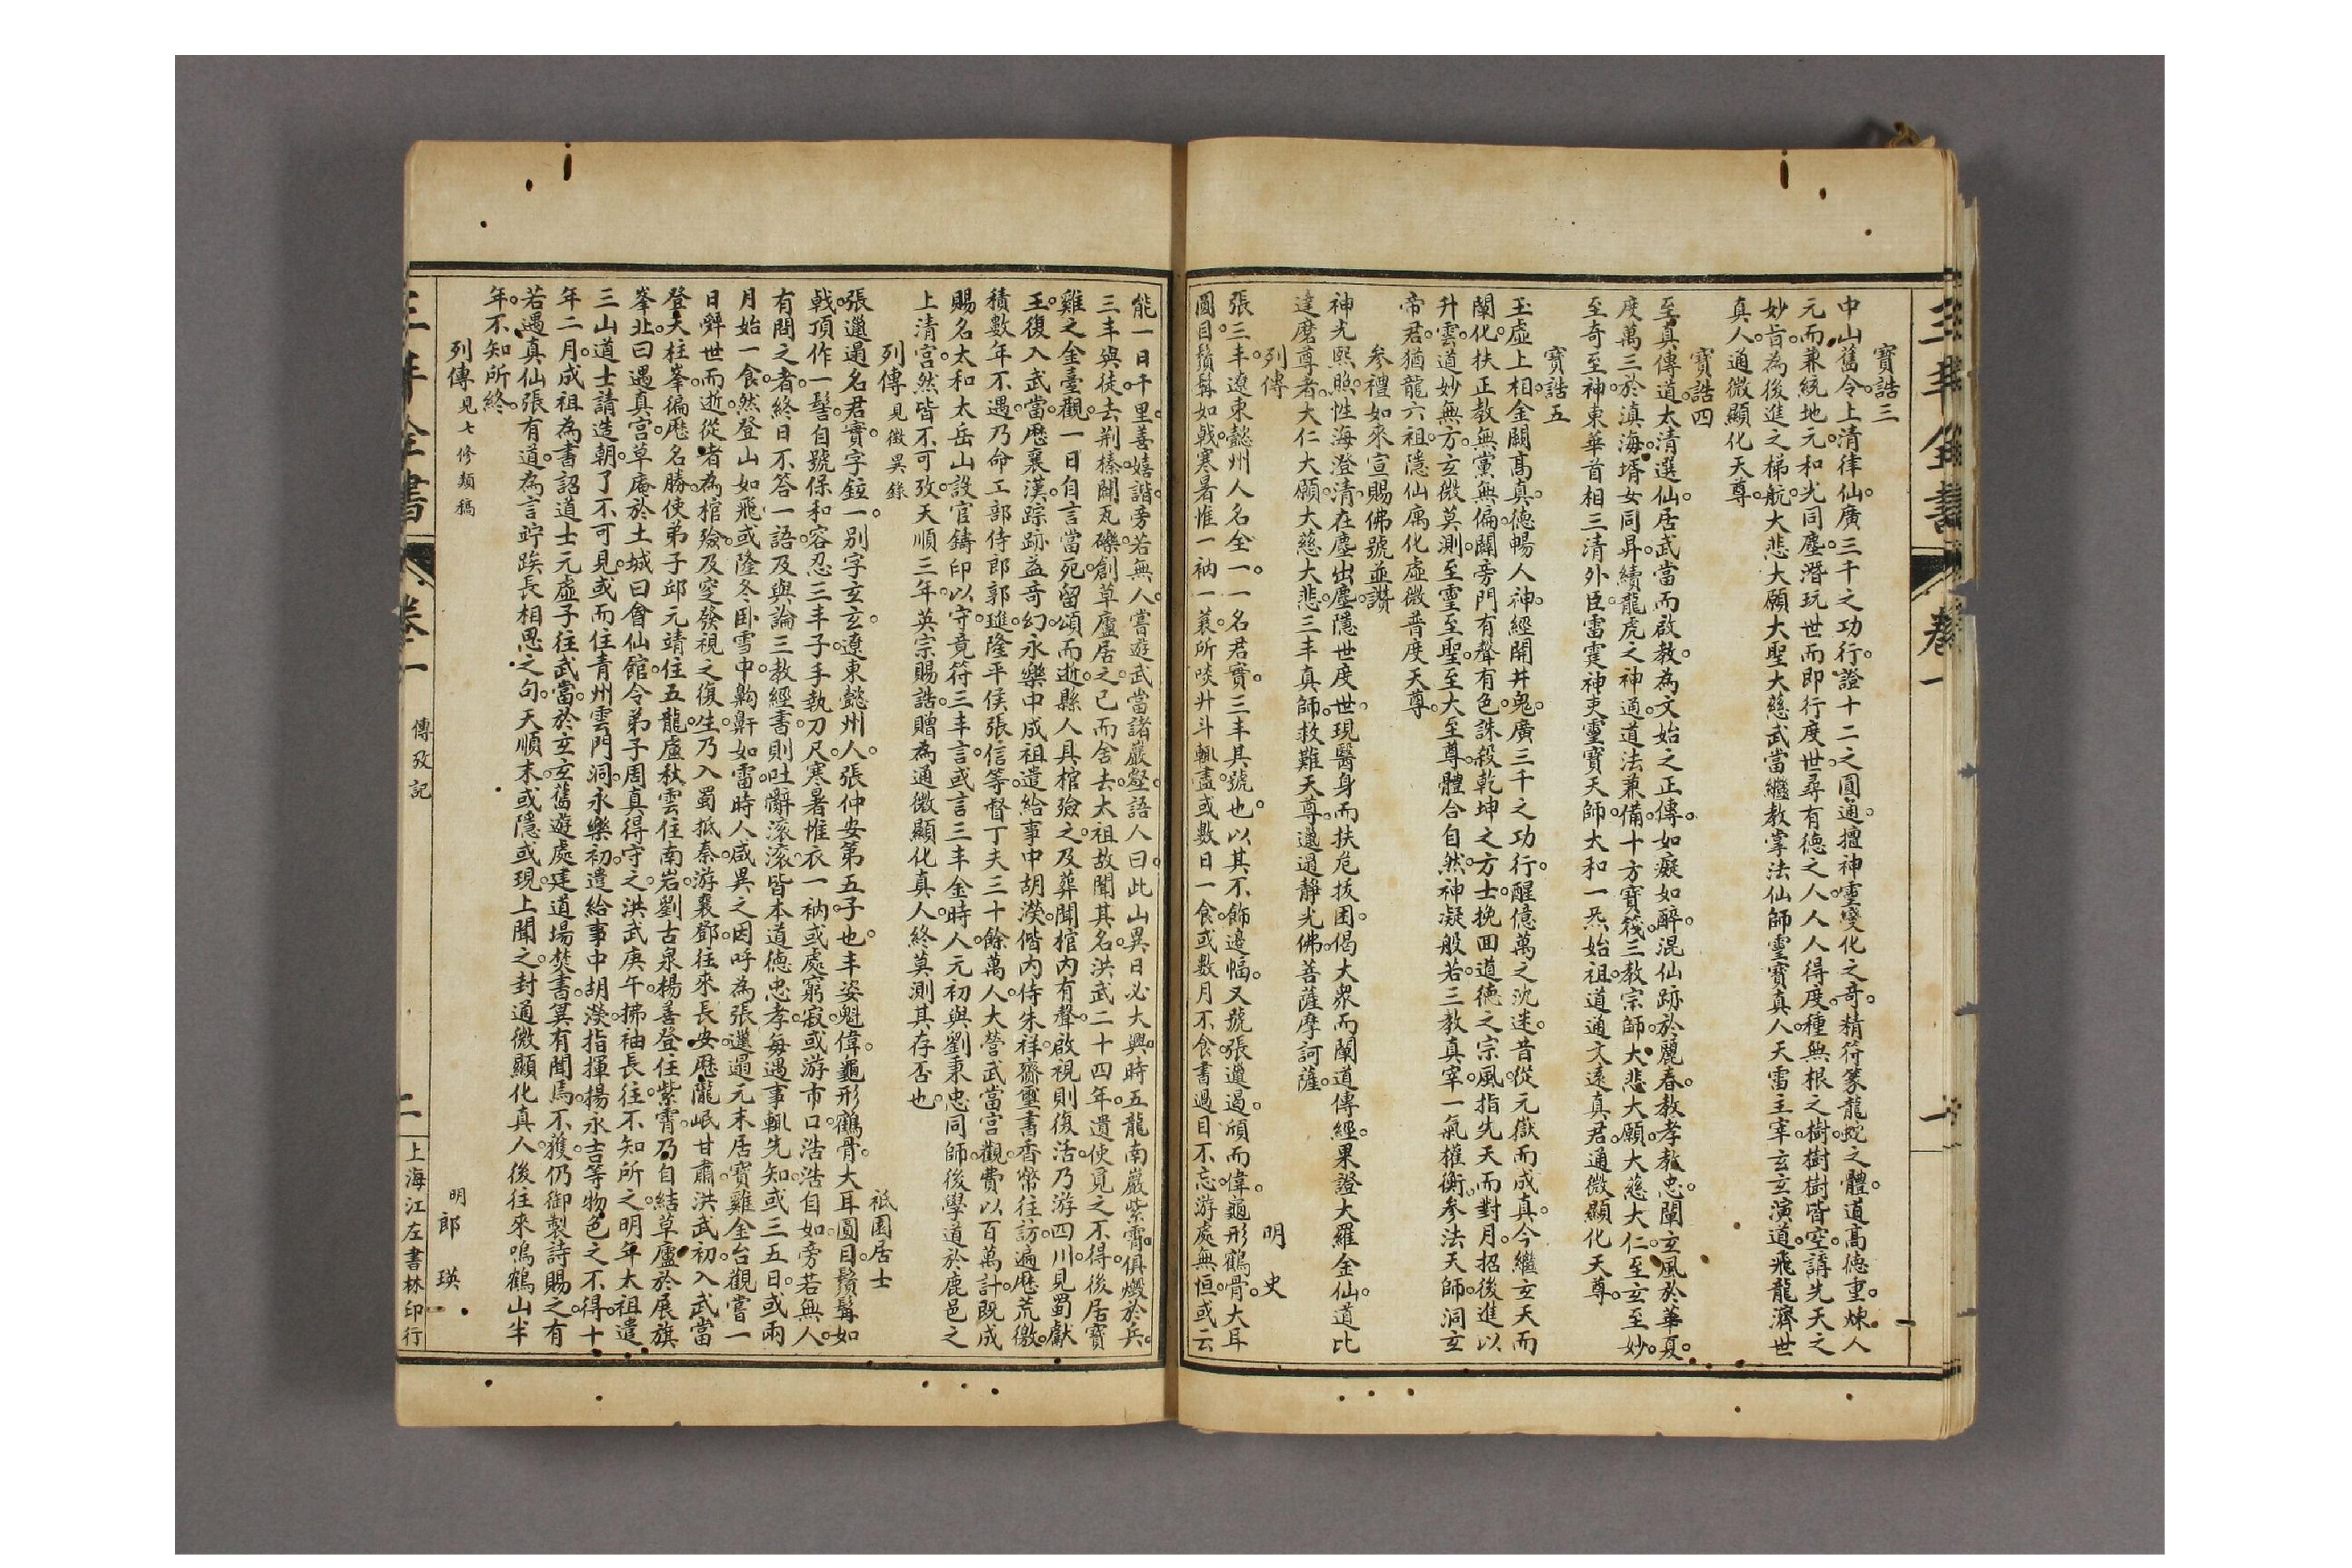 三丰全書
卷一
一
寶誥三
中山舊令。上清律仙。廣三千之功行。證十二之圓通。擅神靈變化之奇。精符篆龍蛇之體。道高德重。煉人
元而兼統地元。和光同塵。潛玩世而即行度世。尋有德之人。人人得度。種無根之樹。樹樹皆空。講先天之
妙旨。為後進之梯航。大悲大願。大聖大慈。武當繼教。掌法仙師。靈寶真人。天雷主宰。玄玄演道。飛龍濟世
真人。通微顯化天尊。
寶誥四
至真傳道。太清選仙。居武當而啟教。為文始之正傳。如癡如醉。混仙跡於麗春。教孝教忠。闡玄風於華夏。
度萬三於滇海。壻女同昇。續龍虎之神通。道法兼備。十方寶筏。三教宗師。大悲大願。大慈大仁。至玄至妙。
至奇至神。東華首相。三清外臣。雷霆神吏。靈寶天師。太和一炁始祖。道通文遠真君。通微顯化天尊。
寶誥五
玉虛上相。金闕高真。德暢人神。經開井鬼。廣三千之功行。醒億萬之沈迷。昔從元嶽而成真。今繼玄天而
闡化。扶正教無黨無偏。闢旁門有聲有色。誅殺乾坤之方士。挽回道德之宗風。指先天而對月。招後進以
升雲。道妙無方。玄微莫測。至靈至聖。至大至尊。體合自然。神凝般若。三教真宰。一氣權衡。参法天師。洞玄
帝君。猶龍六祖。隱仙寓化虛微普度天尊。
参禮如來宣賜佛號並讚
神光熙照。性海澄清。在塵出塵。隱世度世。現醫身而扶危拔困。偈大衆而闡道傳經。果證大羅金仙。道比
達磨尊者。大仁大願。大慈大悲。三丰真師。救難天尊。邋遢靜光佛。菩薩摩訶薩。
列傳
明　史
張三丰。遼東懿州人。名全一。一名君實。三丰其號也。以其不飾邊幅。又號張邋遢。頎而偉。龜形鶴骨。大耳
圓目。鬚髯如戟。寒暑惟一衲一蓑。所啖升斗輒盡。或數日一食。或數月不食。書過目不忘。游處無恒。或云
能一日千里。善嬉諧。旁若無人。嘗遊武當諸巖壑。語人曰。此山異日必大興。時五龍南巖紫霄俱燬於兵。
三丰與徒。去荆榛。闢瓦礫。創草廬居之。已而舍去。太祖故聞其名。洪武二十四年。遣使覓之不得。後居寶
雞之金臺觀。一日自言當死。留頌而逝。縣人具棺殮之。及葬聞棺内有聲。啟視則復活。乃游四川。見蜀獻
王。復入武當。歷襄漢。踪跡益奇幻。永樂中。成祖遣給事中胡濙。偕内侍朱祥。齎璽書香幣往訪。遍歷荒徼。
積數年不遇。乃命工部侍郎郭璡。隆平侯張信等。督丁夫三十餘萬人。大營武當宮觀。費以百萬計。既成
賜名太和太岳山。設官鑄印以守。竟符三丰言。或言三丰金時人。元初與劉秉忠同師。後學道於鹿邑之
上清宫。然皆不可攷。天順三年。英宗賜誥。贈為通微顯化真人。終莫測其存否也。
列傳見徵異錄
祗園居士
張邋遢。名君實。字鉉一。别字玄玄。遼東懿州人。張仲安第五子也。丰姿魁偉。龜形鶴骨。大耳圓目。鬚髯如
戟。頂作一髻。自號保和容忍三丰子。手執刀尺。寒暑惟衣一衲。或處窮寂。或游市口。浩浩自如。旁若無人。
有問之者。終日不答一語。及與論三教經書。則吐辭滚滚。皆本道德忠孝。每遇事輒先知。或三五日。或兩
月始一食。然登山如飛。或隆冬卧雪中。齁鼾如雷。時人咸異之。因呼為張邋遢。元末居寶雞金台觀。嘗一
日辭世而逝。從者為棺殮。及窆發視之復生。乃入蜀抵秦。游襄鄧。往來長安。歷隴岷甘肅。洪武初。入武當
登天柱峯。徧歷名勝。使弟子邱元靖住五龍。盧秋雲住南岩。劉古泉楊善登住紫霄。乃自結草廬於展旗
峯北。曰遇真宫。草庵於土城。曰會仙館。令弟子周真得守之。洪武庚午。拂袖長往。不知所之。明年。太祖遣
三山道士請造朝。了不可見。或而住青州雲門洞。永樂初。遣給事中胡濙。指揮揚永吉等。物色之不得。十
年二月。成祖為書。詔道士元虛子往武當。於玄玄舊遊處。建道場焚書。冀有聞焉。不獲。仍御製詩賜之。有
若遇真仙張有道。為言竚跂長相思之句。天順末。或隱或現。上聞之。封通微顯化真人。後往來鳴鶴山半
年。不知所終。
列傳見七修類稿
明郎　瑛
三丰全書
卷一
傳攷記
二
上海江左書林印行